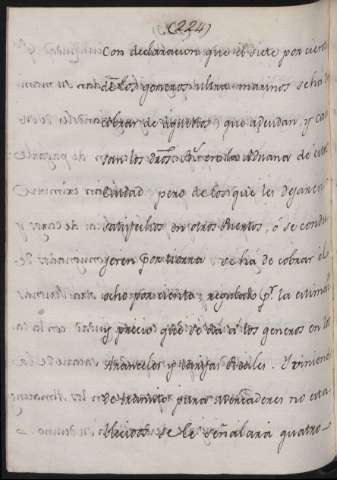 (224)
con declaracion que el siete por ciento
de los generos ultra marinos se ha de
cobrar de aquellos, que adeudan, y cau
san los dros. en la Aduana de esta
Ciudad pero de los que les dejaren
satisfechos en otros Puertos, ó se condu
geren por tierra se ha de cobrar el
ocho por ciento regulado pr. la estima
y precio que se dá á los generos en los
Aranceles y tarifas Reales. Y viniendo
de transito para Mercaderes no esta
blecidos se le señalara quatro